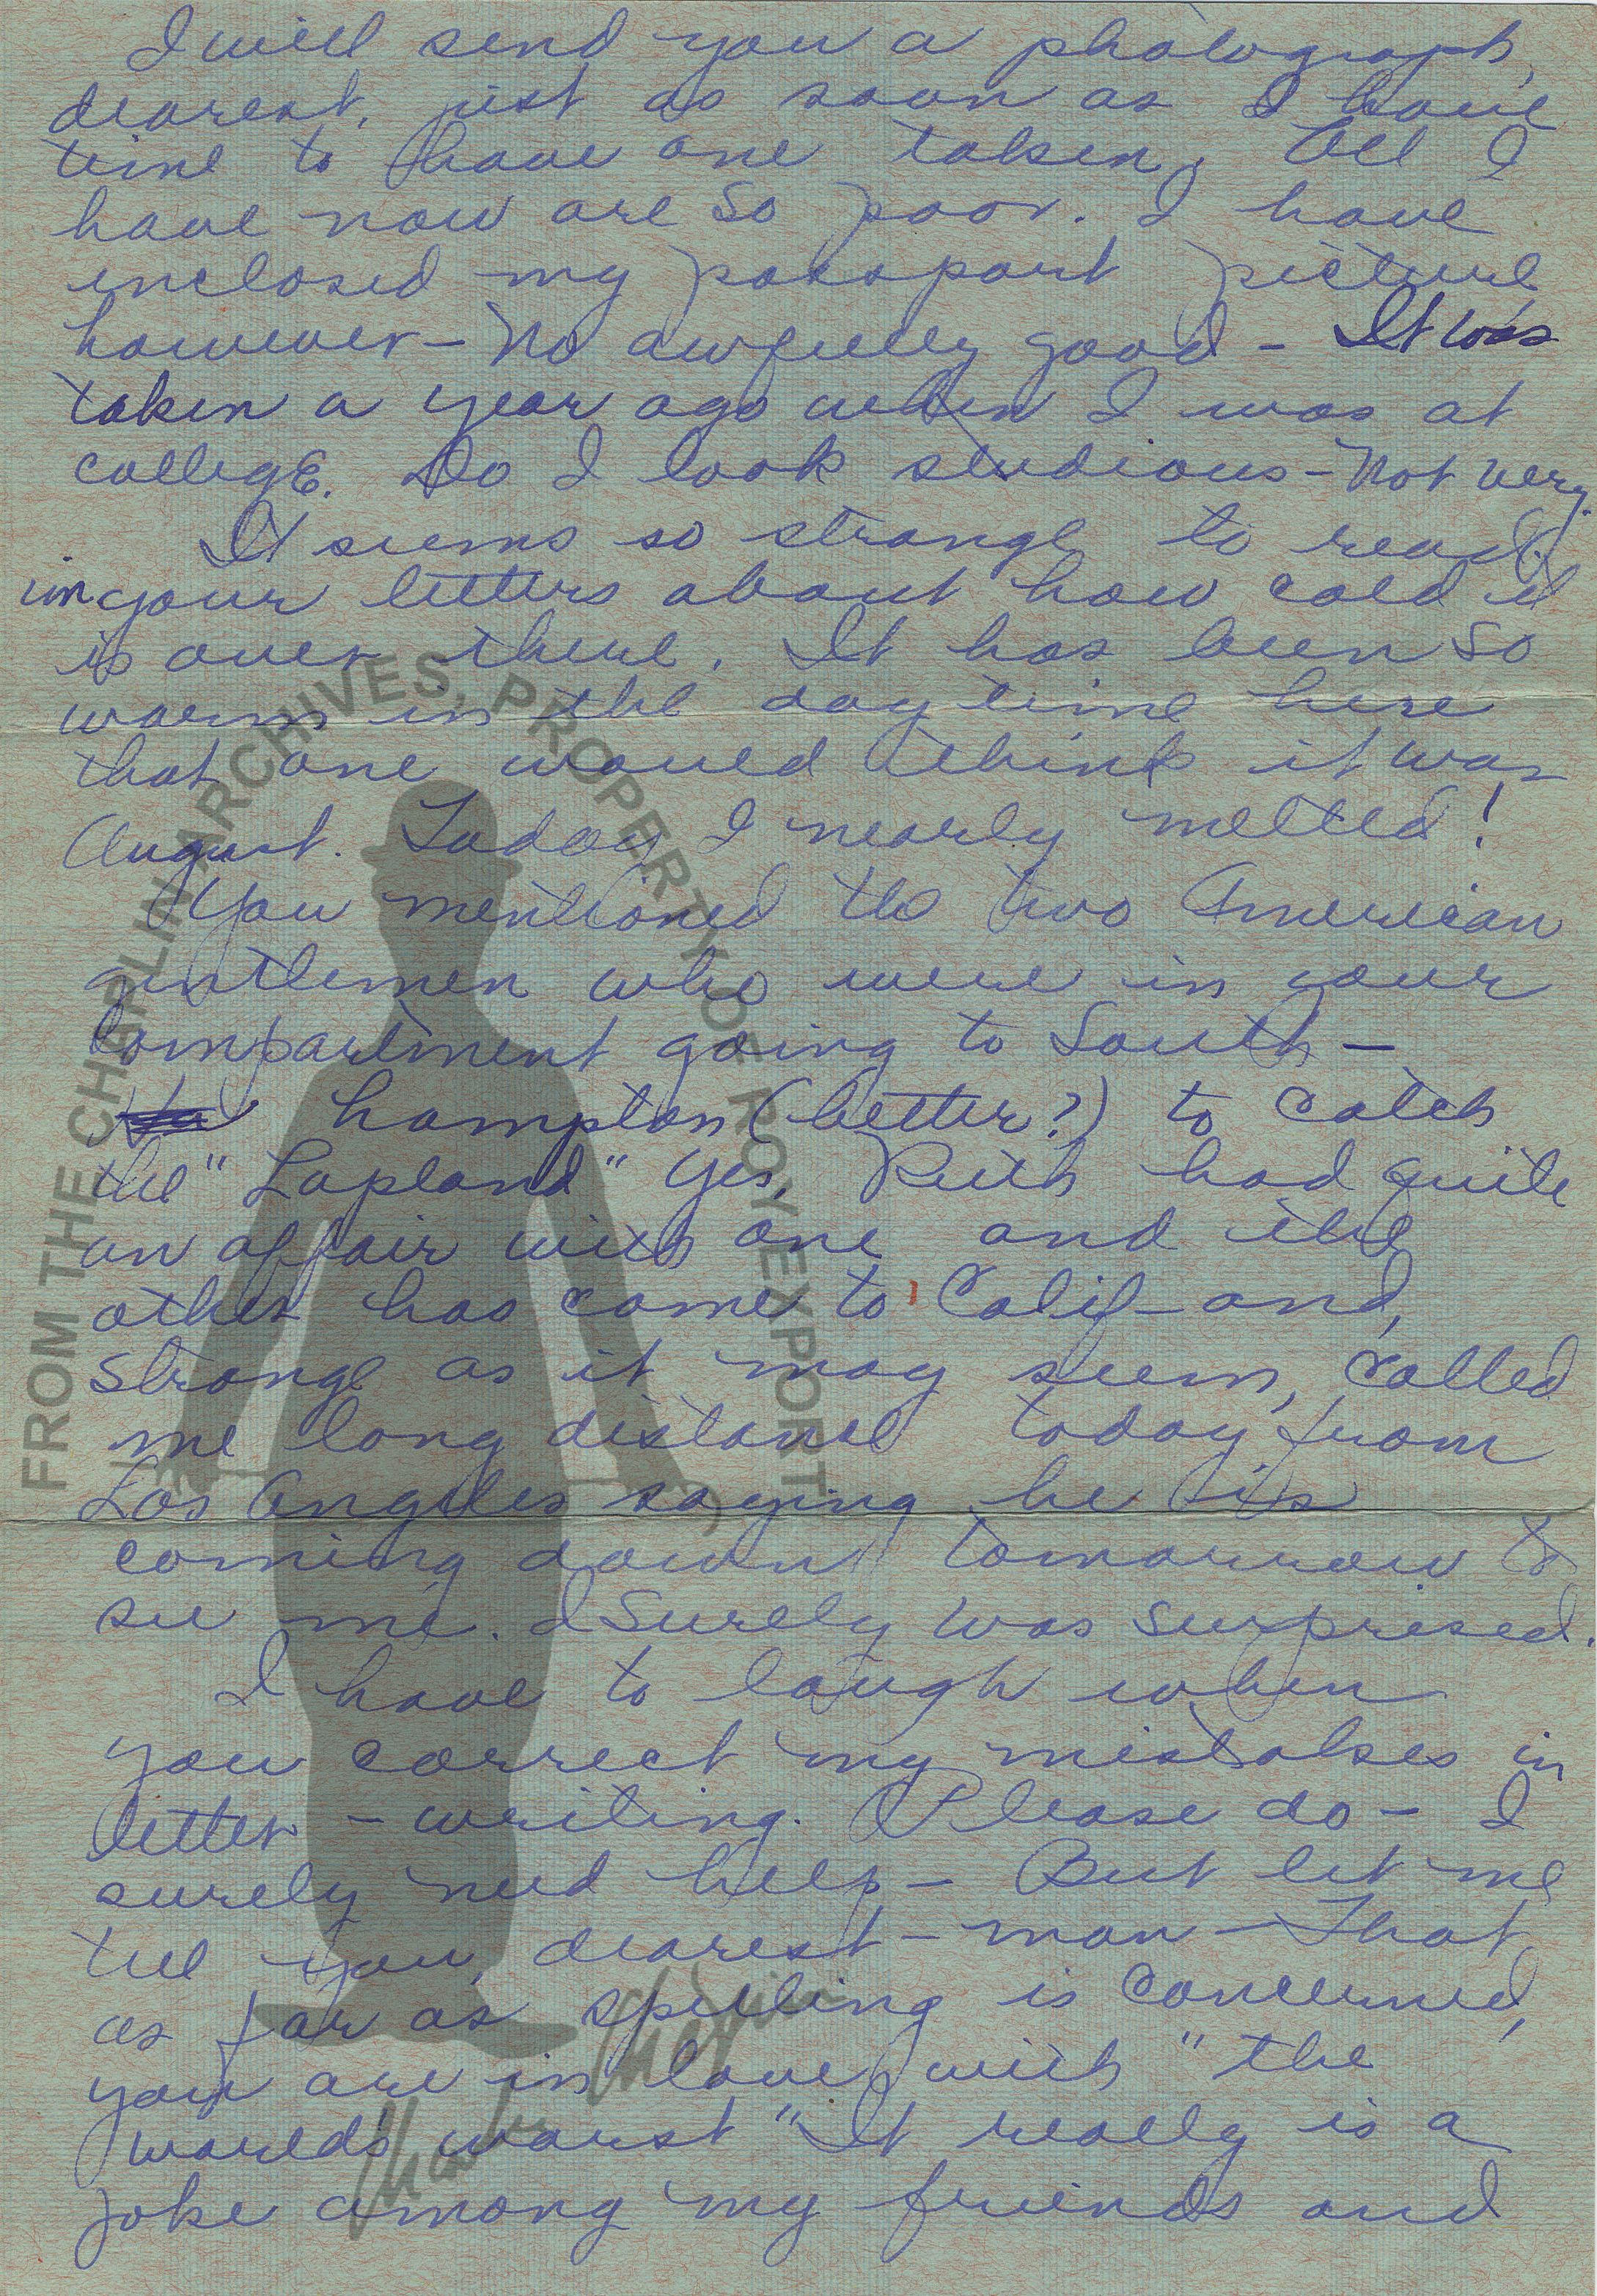 I will send you a photograph,
dearest, just as soon as I have
time to have one taken. All I
have now are so poor. I have
inclosed my passport picture
however — No awfully good — It was
taken a year ago when I was at
college. Do I look studious — Not very.
It seems so strange to read
in your letters about how cold it
is over there. It has been so
warm in the day time here
that one would think it was
August. Today I nearly melted!
You mentioned the two American
gentlemen who were in your
compartment going to South —
hampton (better?) to catch
the "Lapland" Yes, Ruth had quite
an affair with one and the
other has come to Calif — and,
strange as it may seem, called
me long distance today from
Los Angeles saying he is
coming down tomorrow to
see me. I surely was surprised.
I have to laugh when
you correct my mistakes in
letter — writing. Please do — I
surely need help — But let me
tell you, dearest — man — That,
as far as spelling is concerned,
you are in love with "the
world's worst" It really is a
joke among my friends and
FROM THE CHAPLIN ARCHIVES, PROPERTY OF ROY EXPORT
Charles Chaplin